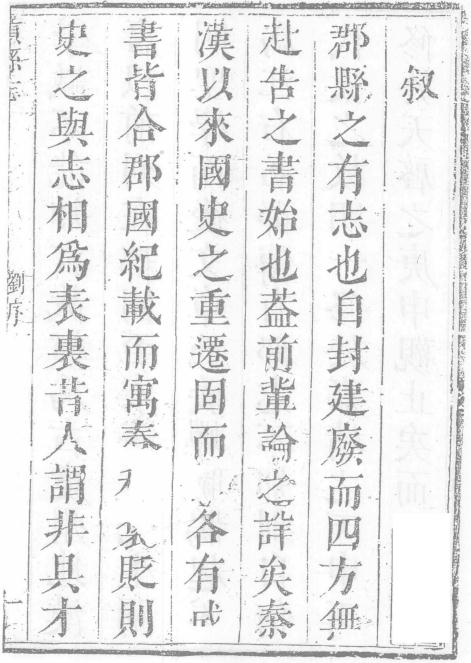 叙
郡縣之有志也自封建廢而四方無
赴告之書始也葢前輩論之詳矣秦
漢以來國史之重遷固而 各有成
書皆合郡國紀載而寓春 貶則
史之與志相爲表裏昔人謂非具才
縣志
劉序
一